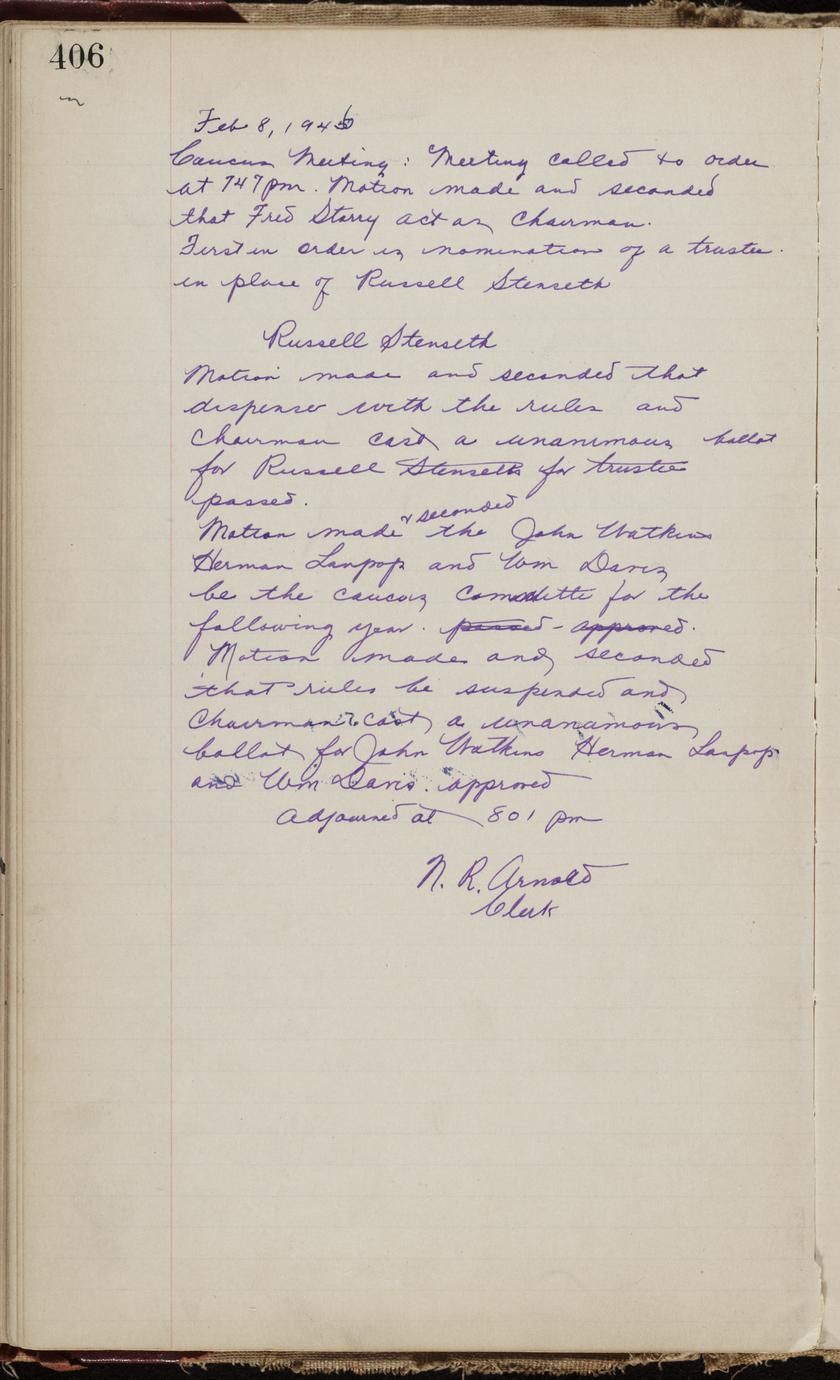 406
Feb 8, 1946
Caucus Meeting: Meeting called to order
at 747 pm. Motion made and seconded
that Fred Starry act as Chairman.
First in order is nomination of a trustee.
in place of Russell Stenseth
Russell Stenseth
Motion made and seconded that
dispense with the rules and
Chairman cast a unanimous ballot
for Russell Stenseth for trustee
passed.
Motion made & seconded the John Watkins
Herman Lanpop and Wm Davis
be the caucus committe for the
following year. passed - approved.
Motion made and seconded
that rules be suspended and
Chairman cast a unanamous
ballot for John Watkins Herman Lanpop
and Wm Davis. approved
Adjourned at 801 pm
N. R. Arnold
Clerk